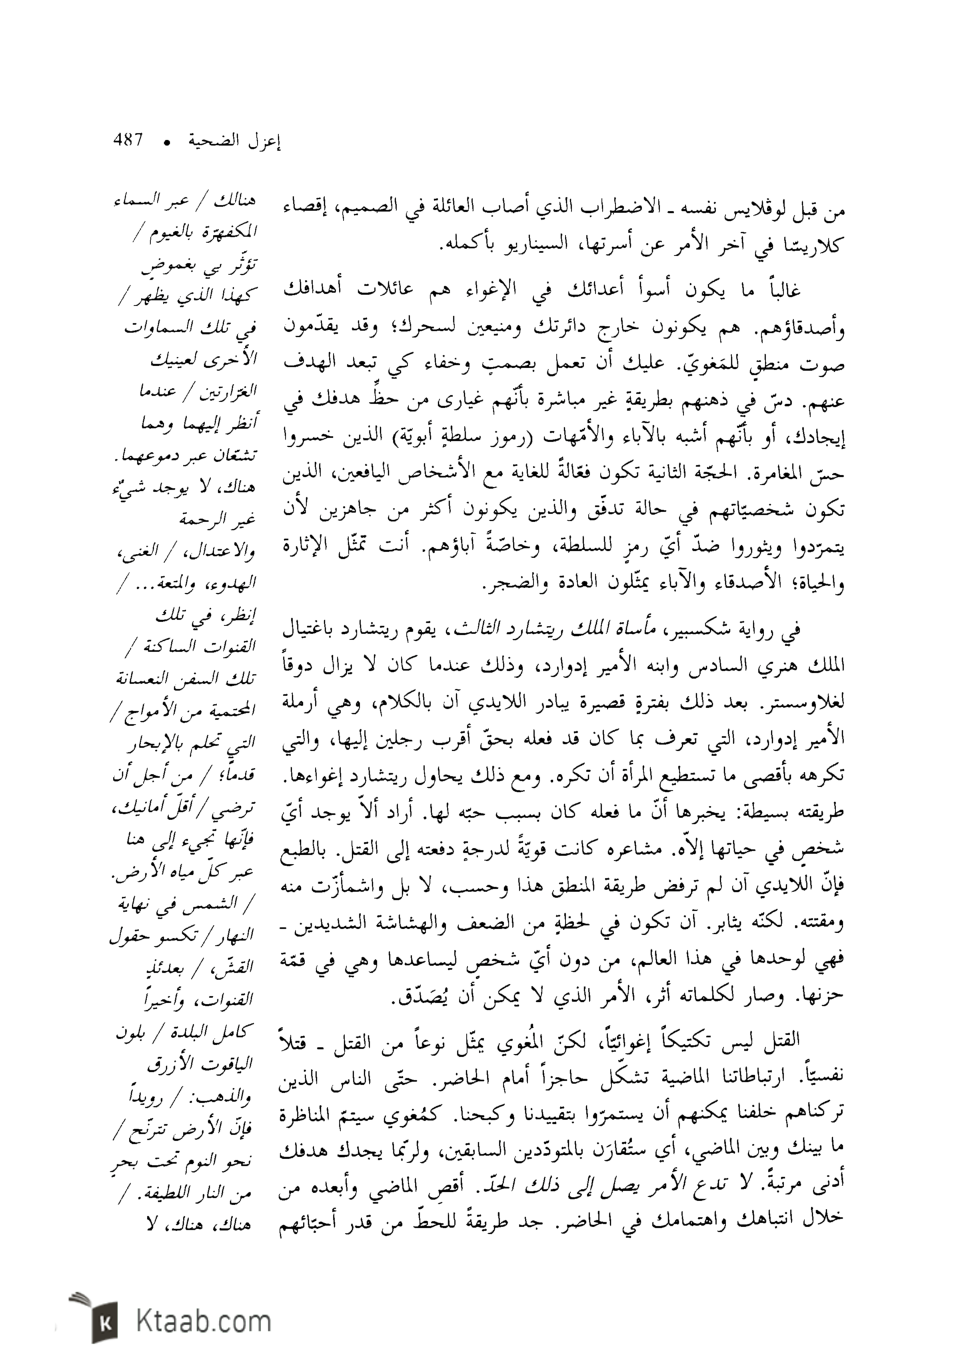 إعزل الضحية • 487
من قبل لوڤلايس نفسه ـ الاضطراب الذي أصاب العائلة في الصميم، إقصاء
كلاريسّا في آخر الأمر عن أسرتها، السيناريو بأكمله.
غالباً ما يكون أسوأ أعدائك في الإغواء هم عائلات أهدافك
وأصدقاؤهم. هم يكونون خارج دائرتك ومنيعين لسحرك؛ وقد يقدّمون
صوت منطقٍ للمَغويّ. عليك أن تعمل بصمتٍ وخفاء كي تبعد الهدف
عنهم. دسّ في ذهنهم بطريقةٍ غير مباشرة بأنّهم غيارى من حظِّ هدفك في
إيجادك، أو بأنّهم أشبه بالآباء والأمّهات (رموز سلطةٍ أبويّة) الذين خسروا
حسّ المغامرة. الحجّة الثانية تكون فعّالةً للغاية مع الأشخاص اليافعين، الذين
تكون شخصيّاتهم في حالة تدفّق والذين يكونون أكثر من جاهزين لأن
يتمرّدوا ويثوروا ضدّ أيّ رمزٍ للسلطة، وخاصّةً آباؤهم. أنت تمثّل الإثارة
والحياة؛ الأصدقاء والآباء يمثّلون العادة والضجر.
في رواية شكسبير، مأساة الملك ريتشارد الثالث، يقوم ريتشارد باغتيال
الملك هنري السادس وابنه الأمير إدوارد، وذلك عندما كان لا يزال دوقاً
لغلاوسستر. بعد ذلك بفترةٍ قصيرة يبادر اللايدي آن بالكلام، وهي أرملة
الأمير إدوارد، التي تعرف بما كان قد فعله بحقّ أقرب رجلين إليها، والتي
تكرهه بأقصى ما تستطيع المرأة أن تكره. ومع ذلك يحاول ريتشارد إغواءها.
طريقته بسيطة: يخبرها أنّ ما فعله كان بسبب حبّه لها. أراد ألاّ يوجد أيّ
شخصٍ في حياتها إلاّه. مشاعره كانت قويّةً لدرجةٍ دفعته إلى القتل. بالطبع
فإنّ اللايدي آن لم ترفض طريقة المنطق هذا وحسب، لا بل واشمأزّت منه
ومقتته. لكنّه يثابر. آن تكون في لحظةٍ من الضعف والهشاشة الشديدين ـ
فهي لوحدها في هذا العالم، من دون أيّ شخصٍ ليساعدها وهي في قمّة
حزنها. وصار لكلماته أثر، الأمر الذي لا يمكن أن يُصَدّق.
القتل ليس تكتيكاً إغوائيّاً، لكنّ المُغوي يمثّل نوعاً من القتل ـ قتلاً
نفسيّاً. ارتباطاتنا الماضية تشكّل حاجزاً أمام الحاضر. حتّى الناس الذين
تركناهم خلفنا يمكنهم أن يستمرّوا بتقييدنا وكبحنا. كمُغوي سيتمّ المناظرة
ما بينك وبين الماضي، أي ستُقارَن بالمتودّدين السابقين، ولربّما يجدك هدفك
أدنى مرتبةً. لا تدع الأمر يصل إلى ذلك الحدّ. أقصِ الماضي وأبعده من
خلال انتباهك واهتمامك في الحاضر. جد طريقةً للحطّ من قدر أحبّائهم
هنالك / عبر السماء
المكفهرّة بالغيوم /
تؤثّر بي بغموضٍ
كهذا الذي يظهر /
في تلك السماوات
الأخرى لعينيك
الغرّارتين / عندما
أنظر إليهما وهما
تشعّان عبر دموعهما.
هناك، لا يوجد شيءٌ
غير الرحمة
والاعتدال، / الغنى،
الهدوء، والمتعة... /
إنظر، في تلك
القنوات الساكنة /
تلك السفن النعسانة
المحتمية من الأمواج /
التي تحلم بالإبحار
قدماً؛ / من أجل أن
ترضي / أقلّ أمانيك،
فإنّها تجيء إلى هنا
عبر كلّ مياه الأرض.
/ الشمس في نهاية
النهار / تكسو حقول
القشّ، / بعدئذٍ
القنوات، وأخيراً
كامل البلدة / بلون
الياقوت الأزرق
والذهب: / رويداً
فإنّ الأرض تترنّح /
نحو النوم تحت بحرٍ
من النار اللطيفة. /
هناك، هناك، لا
Ktaab.com